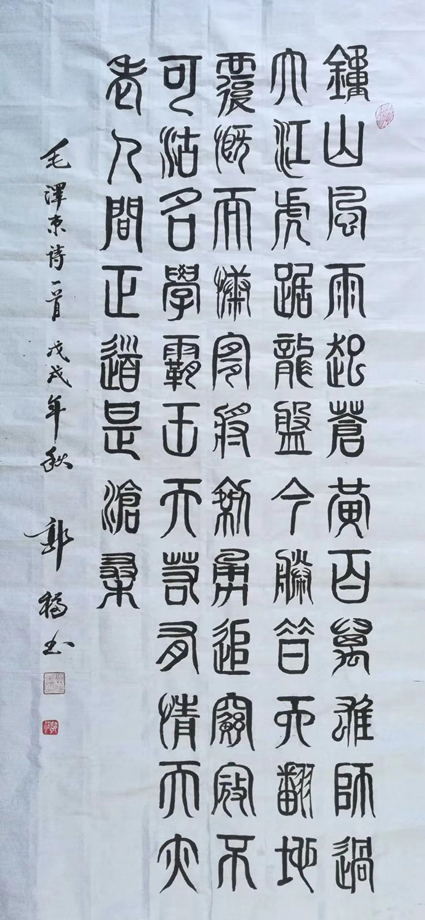 鐘山風雨起蒼黃百萬雄師過
大江虎踞龍盤今勝昔天翻地
覆慨而慷宜將剩勇追窮寇不
可沽名學霸王天若有情天亦
老人間正道是滄桑
毛澤东詩一首 戊戌年秋 郭书